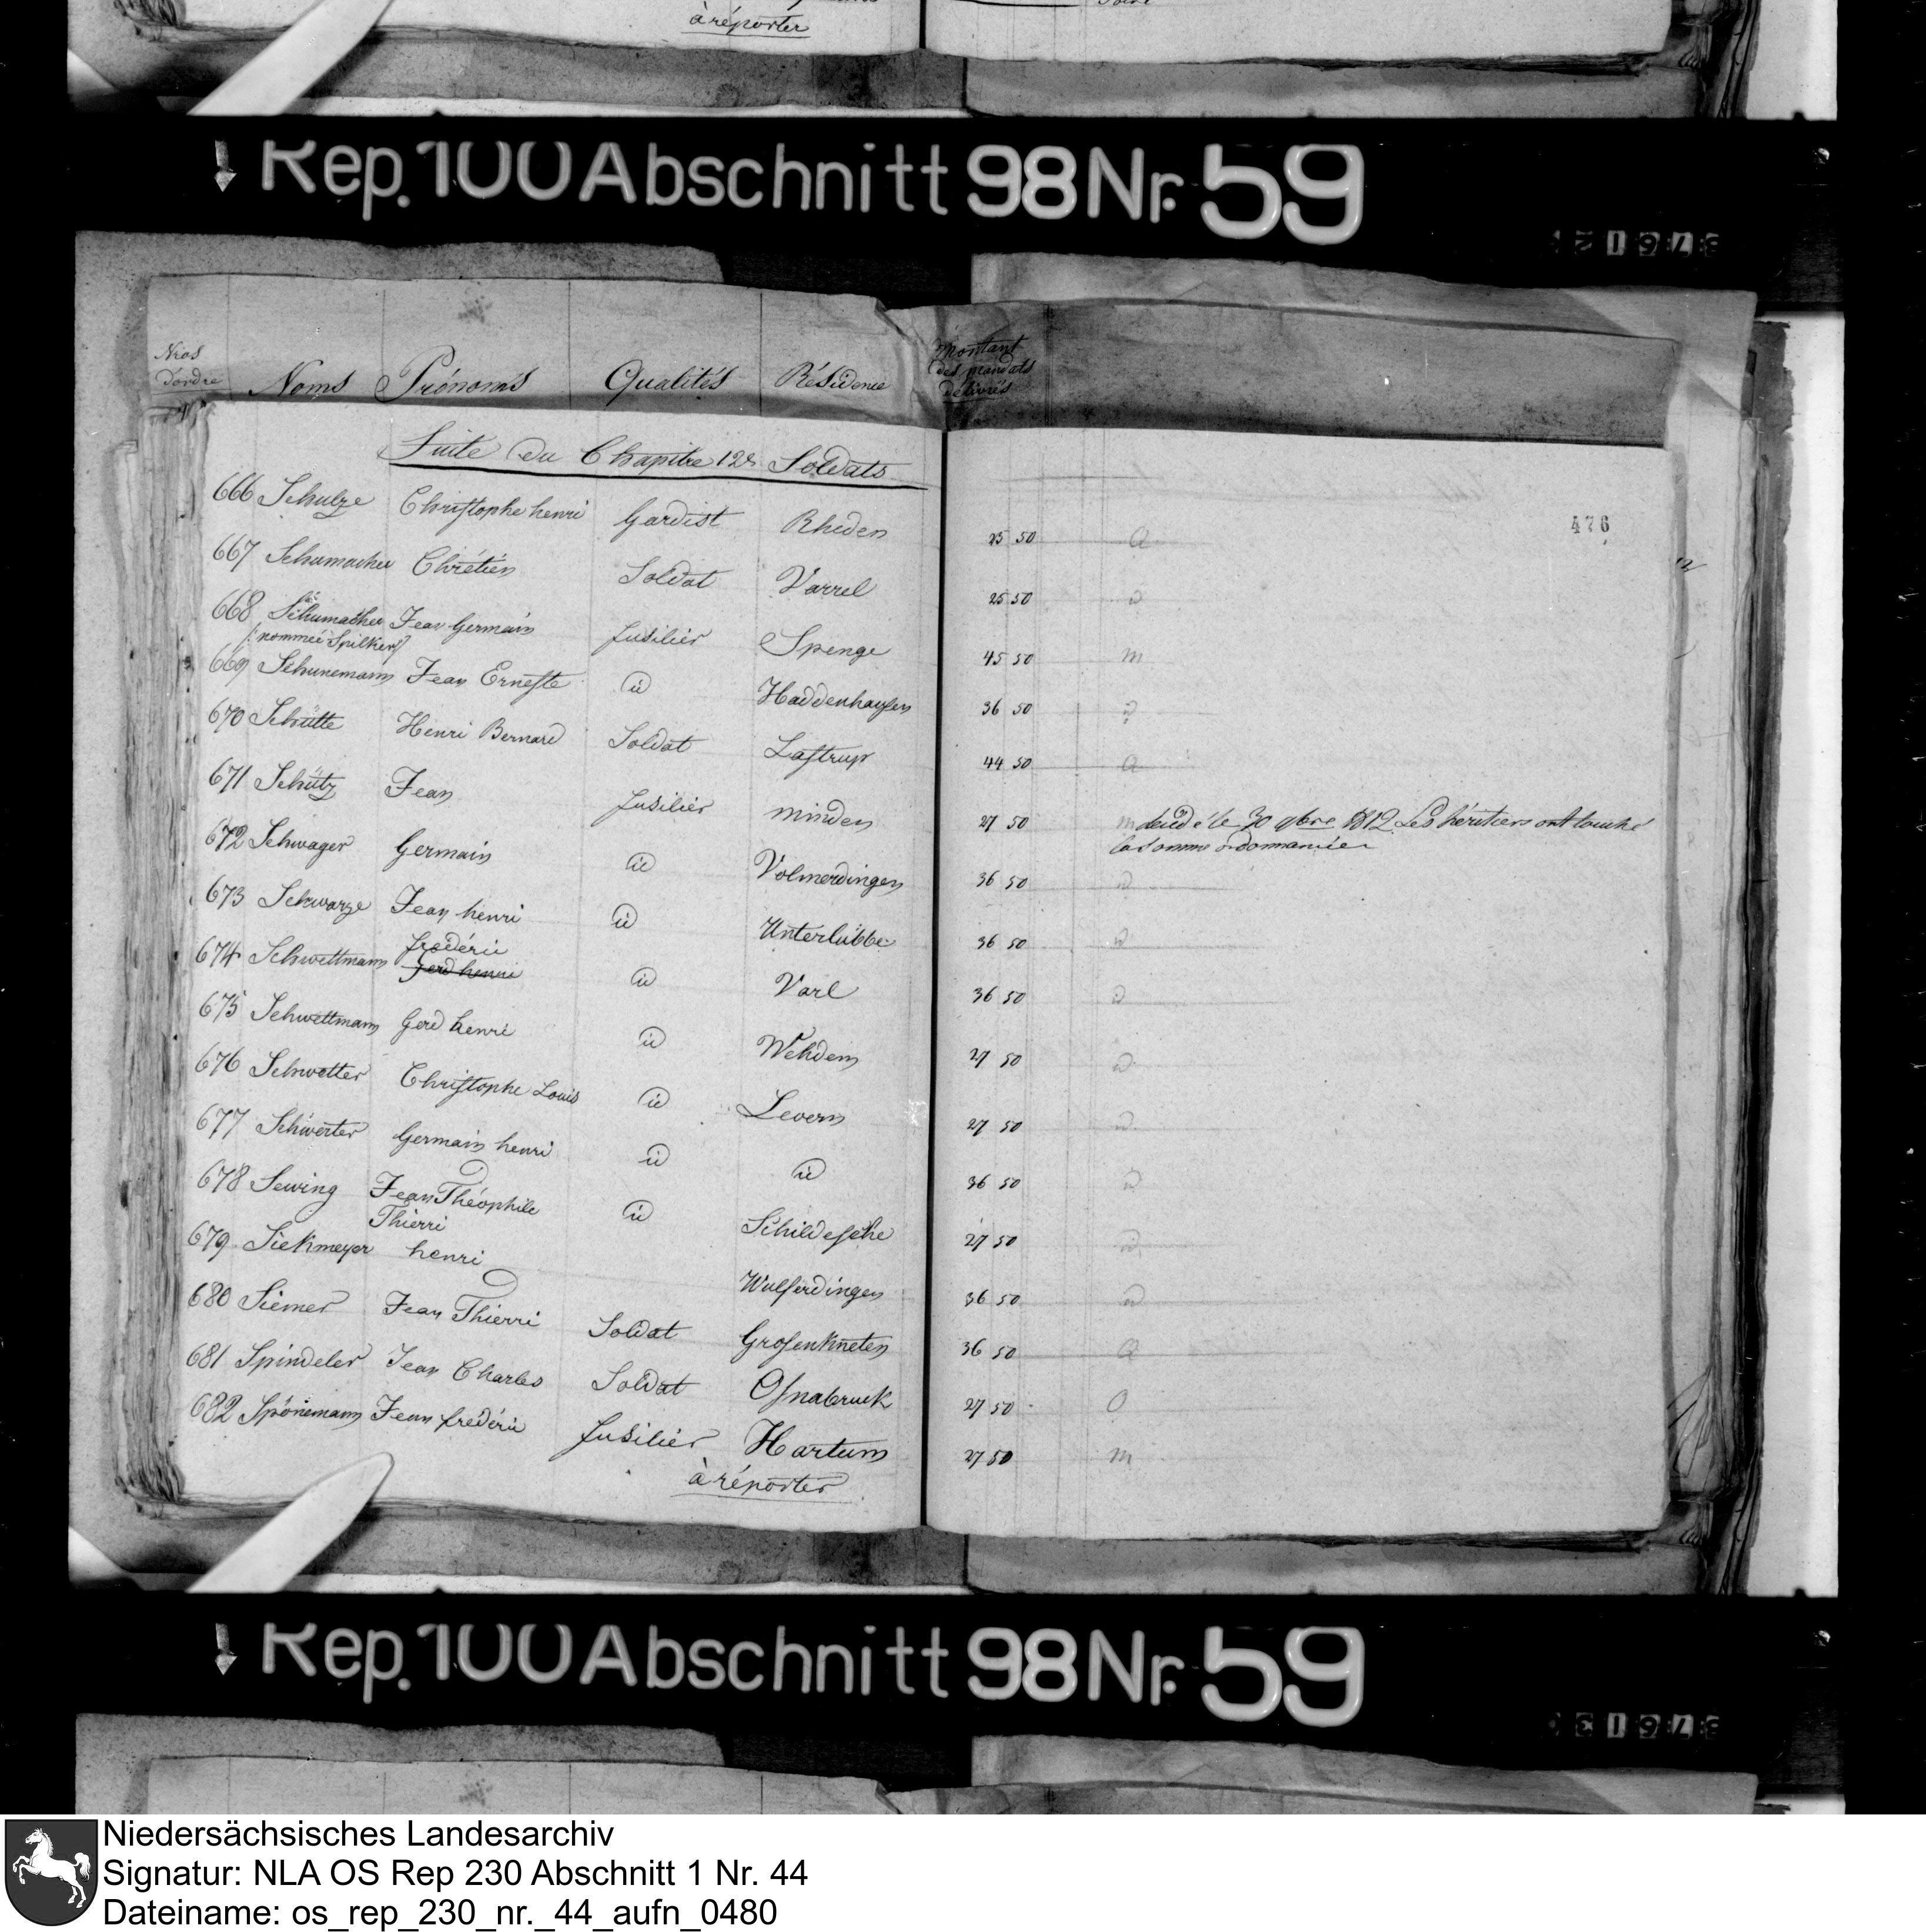 à réporter
Rep. 100 Abschnitt 98 Nr. 59
Nros d'ordre Noms Prénoms Qualités Résidence Montant des mandats délivrés
Suite du Chapitre 12e Soldats
476
666 Schulze Christophe henri Gardist Rheden 25 50 a
667 Schumacher Chrétien Soldat Varrel 25 50 d
668 Schumacher Jean Germain Fusilier Spenge 45 50 m
(nommé Spilker)
669 Schunemann Jean Erneste id Haddenhausen 36 50 d
670 Schütte Henri Bernard Soldat Lastrup 44 50 a
671 Schütz Jean Fusilier minden 27 50 m décédé le 30 9bre 1812 Les héritiers ont touché
la somme ordonnancée
672 Schwager Germain id Volmerdingen 36 50 d
673 Schwarze Jean henri id Unterlübbe 36 50 d
674 Schwettmann frédéric id Varl 36 50 d
Gerd henri
675 Schwettmann Gerd henri id Wehdem 27 50 d
676 Schwetter Christophe Louis id Levern 27 50 d
677 Schwerter Germain henri id id 36 50 d
678 Sewing Jean Théophile id Schildesche 27 50 d
Thierri
679 Siekmeyer henri Wulferdingen 36 50 d
680 Siemer Jean Thierri Soldat Grosenkneten 36 50 a
681 Spindeler Jean Charles Soldat Osnabruck 27 50 O
682 Spönemann Jean frédéric Fusilier Hartum 27 50 m
à réporter
Rep. 100 Abschnitt 98 Nr. 59
Niedersächsisches Landesarchiv
Signatur: NLA OS Rep 230 Abschnitt 1 Nr. 44
Dateiname: os_rep_230_nr._44_aufn_0480